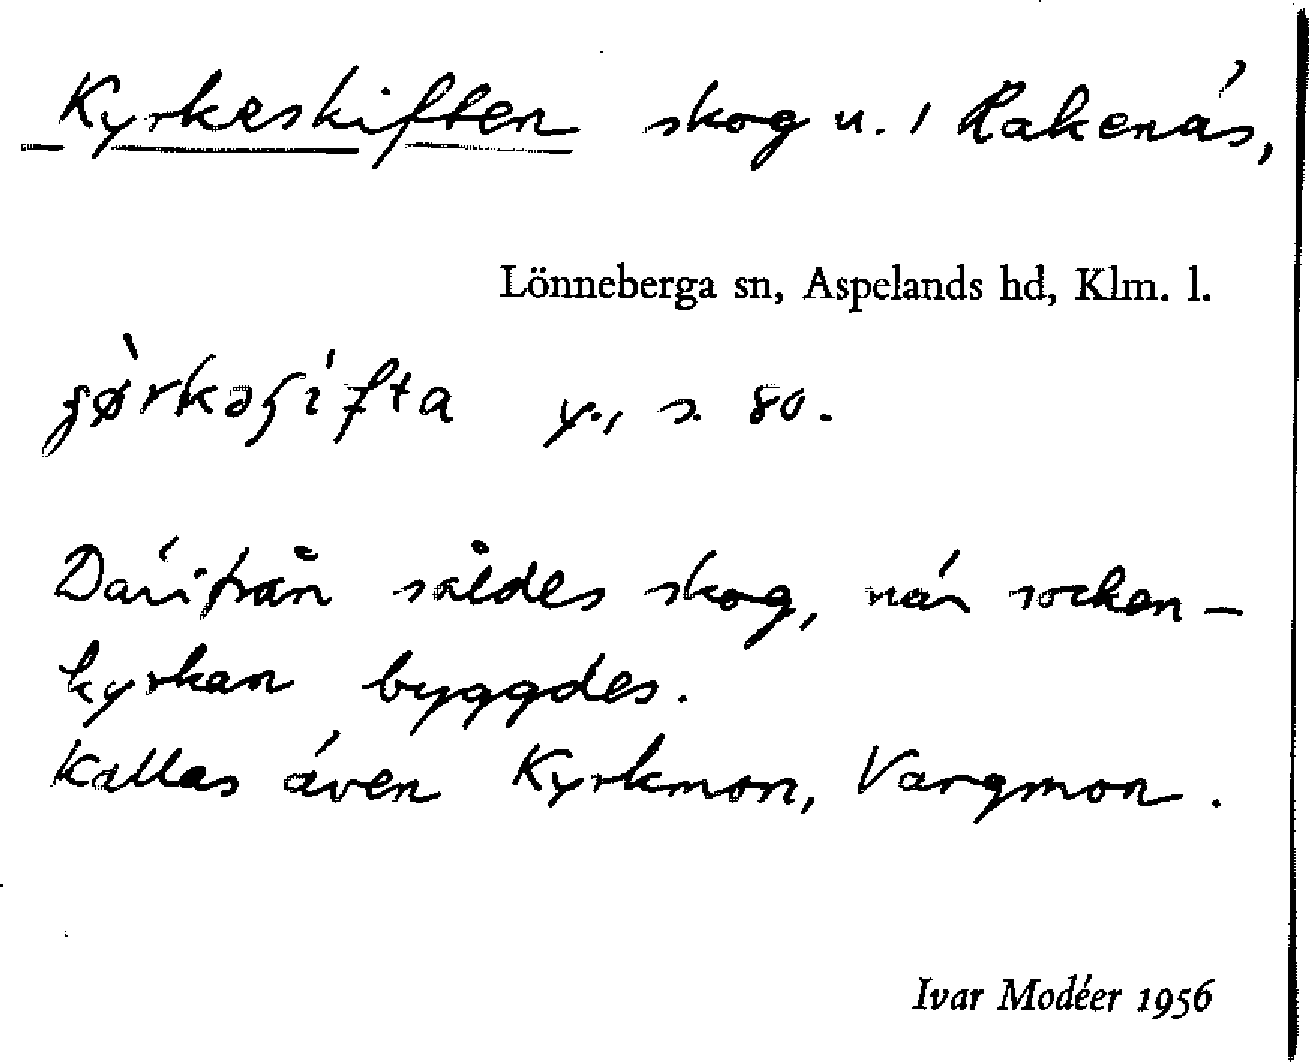 Kyrkeskiften skog u. 1 Rakenäs,
Lönneberga sn, Aspelands hd, Klm. l.
y., s. 80.
Därifrån såldes skog, när socken-
kyrkan byggdes.
Kallas även Kyrkmon, Vargmon.
Ivar Modéer 1956